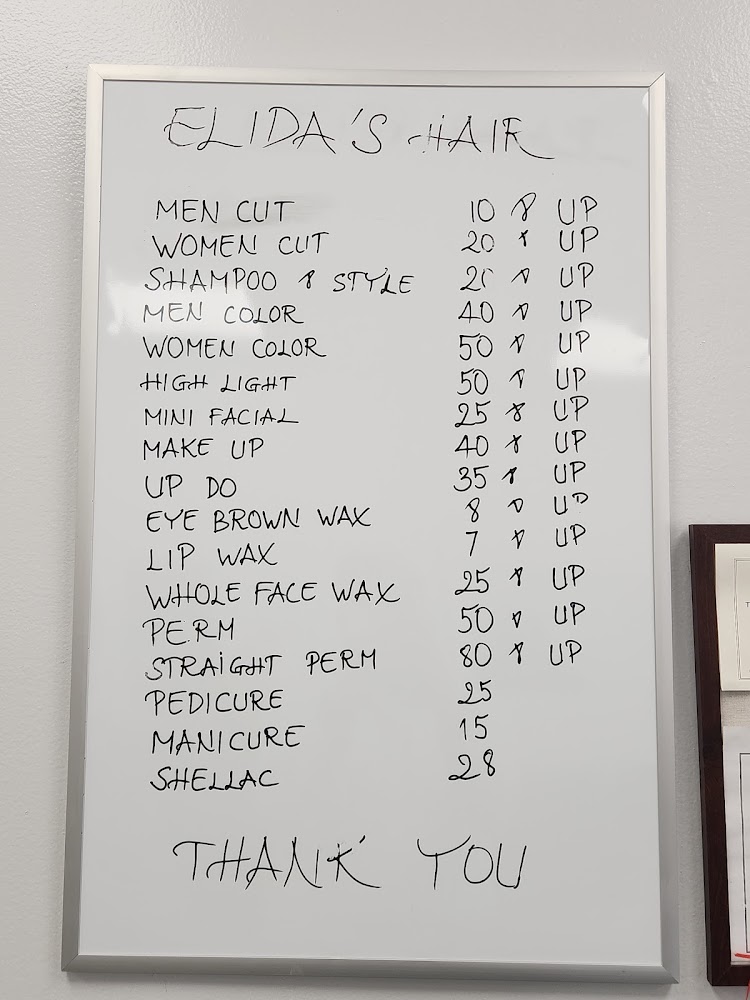 ELIDA'S HAIR
MEN CUT 10 & UP
WOMEN CUT 20 & UP
SHAMPOO & STYLE 20 & UP
MEN COLOR 40 & UP
WOMEN COLOR 50 & UP
HIGH LIGHT 50 & UP
MINI FACIAL 25 & UP
MAKE UP 40 & UP
UP DO 35 & UP
EYE BROWN WAX 8 & UP
LIP WAX 7 & UP
WHOLE FACE WAX 25 & UP
PERM 50 & UP
STRAIGHT PERM 80 & UP
PEDICURE 25
MANICURE 15
SHELLAC 28
THANK YOU